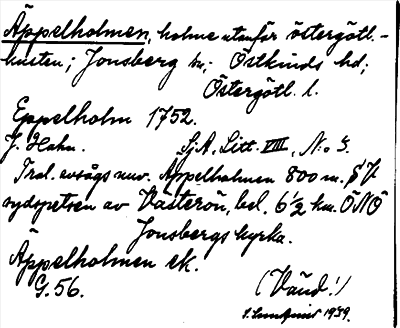 Äppelholmen, holme utanför östergötl.-
kusten; Jonsberg sn; Östkinds hd;
Östergötl. l.
Eppelholm 1752.
J. Hahn. Sj.A. Litt. VIII, N:o 5.
Trol. avsågs nuv. Äppelholmen 800 m. SV.
sydspetsen av Västerön, bel. 6 1/2 km. ÖNÖ
Jonsbergs kyrka.
Äppelholmen ek.
G. 56. (Vänd!)
1939.